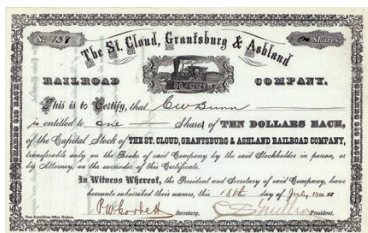 No 139 Shares
The St. Cloud, Grantsburg & Ashland
RAILROAD COMPANY.
This is to Certify, that C W Bunn
is entitled to one Shares of TEN DOLLARS EACH,
of the Capital Stock of THE ST. CLOUD, GRANTSBURG & ASHLAND RAILROAD COMPANY,
transferable only on the Books of said Company by the said Stockholder in person, or
by Attorney, on the surrender of this Certificate.
In Witness Whereof, the President and Secretary of said Company, have
hereunto subscribed their names, this 18th day of July
Secretary, President.